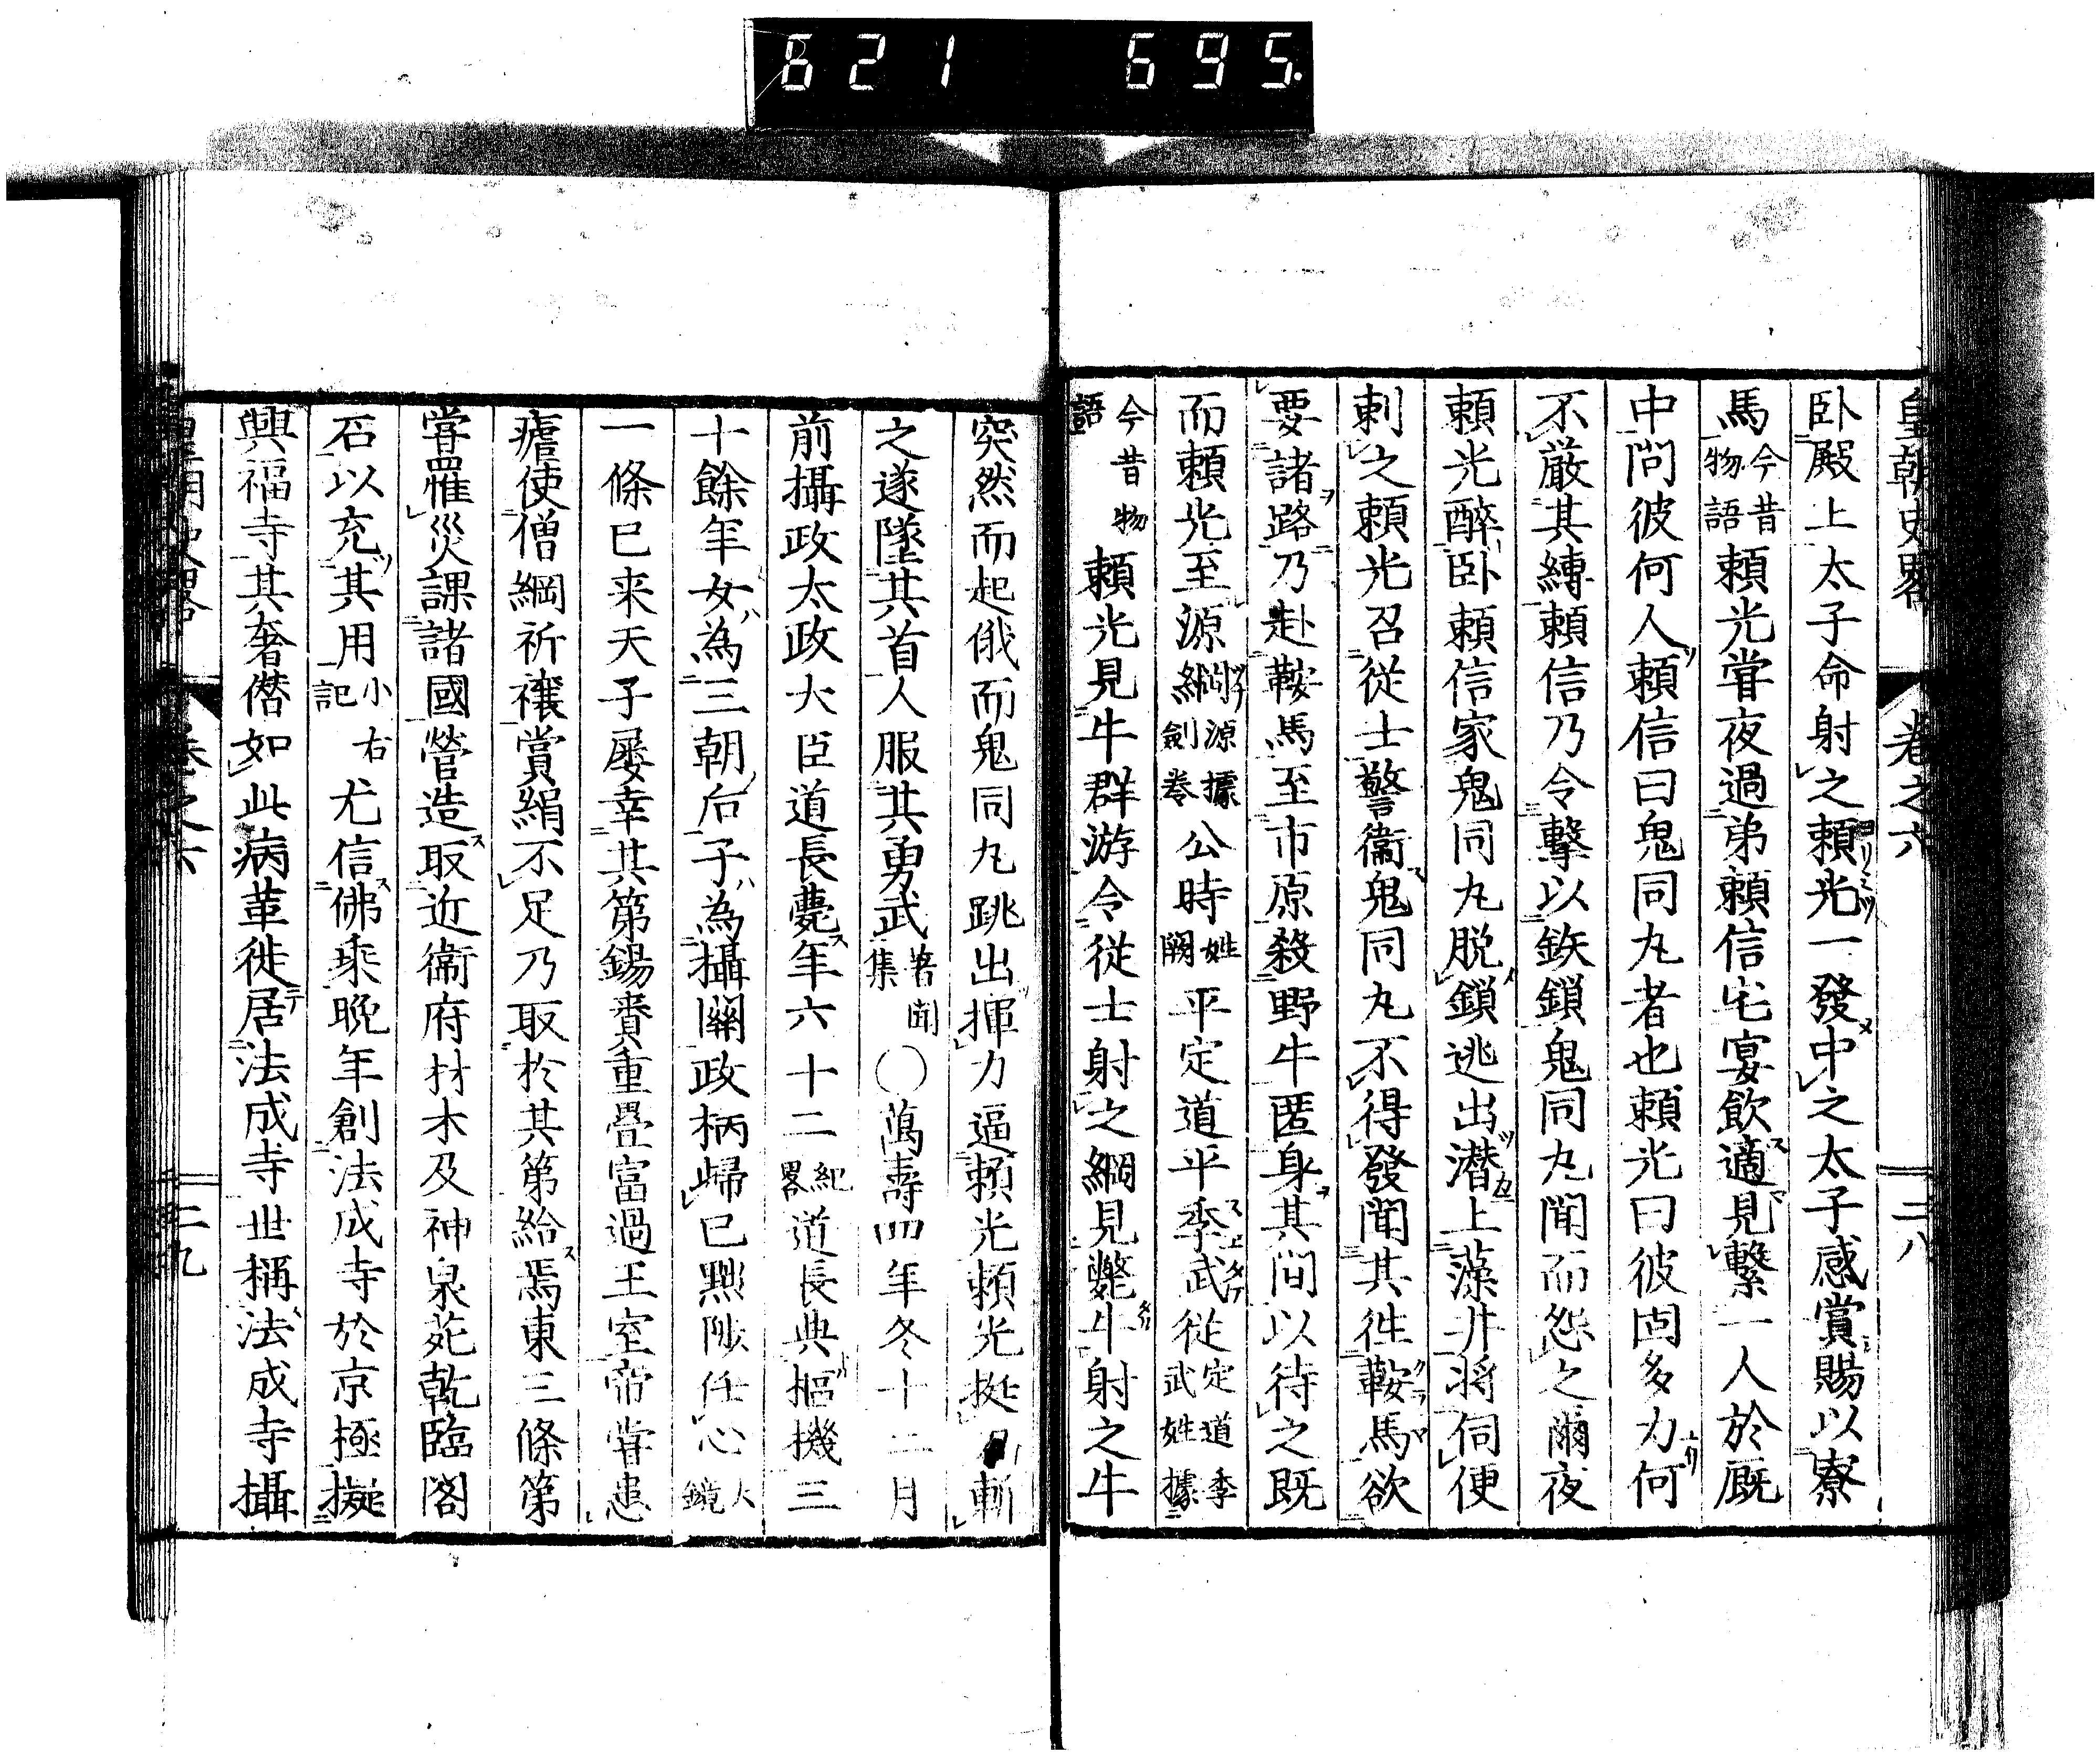 621 695.
皇朝史畧 卷之六 二八
卧殿上太子命射之頼光一發中之太子感賞賜以寮
馬今昔物語頼光甞夜過弟頼信宅宴飲適見繫一人於厩
中問彼何人頼信曰鬼同丸者也頼光曰彼固多力何
不厳其縛頼信乃令擊以鉄鎖鬼同丸聞而怨之爾夜
頼光醉卧頼信家鬼同丸脱鎖逃出潜上藻井将伺便
刺之頼光召従士警衞鬼同丸不得發聞其徃鞍馬欲
要諸路乃赴鞍馬至市原殺野牛匿身其間以待之既
而頼光至源綱源據劍卷公時姓闕平定道平季武従定道季武姓據
今昔物語頼光見牛群游令従士射之綱見斃牛射之牛
突然而起俄而鬼同丸跳出揮力逼頼光頼光挺刀斬
之遂墜其首人服其勇武著聞集〇萬壽四年冬十二月
前攝政太政大臣道長薨年六十二紀畧道長典樞機三
十餘年女為三朝后子為攝關政柄歸已黜陟任心大鏡
一條已来天子屡幸其第錫賚重疊富過王室帝甞患
瘧使僧綱祈禳賞絹不足乃取於其第給焉東三條第
甞罹災課諸國營造取近衞府材木及神泉苑乾臨閣
石以充其用小右記尤信佛乘晩年創法成寺於京極擬
興福寺其奢僭如此病革徙居法成寺世稱法成寺攝
皇朝史畧 卷之六 二九